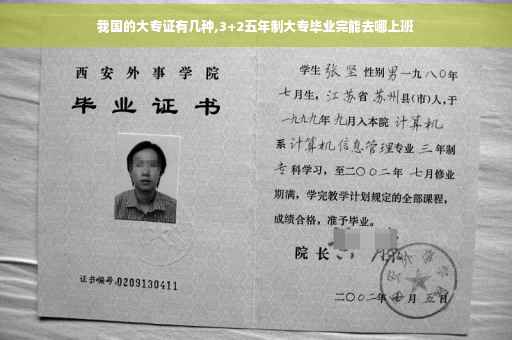 我国的大专证有几种,3+2五年制大专毕业完能去哪上班
西安外事学院
毕业证书
证书编号:0209130411
学生 张坚 性别 男 一九八〇年
七月生, 江苏省 苏州 县(市)人,于
一九九九年 九月入本院 计算机
系 计算机信息管理 专业 三 年制
专 科学习,至二〇〇二年 七月修业
期满,学完教学计划规定的全部课程,
成绩合格,准予毕业。
院长
二〇〇二年 月 五日